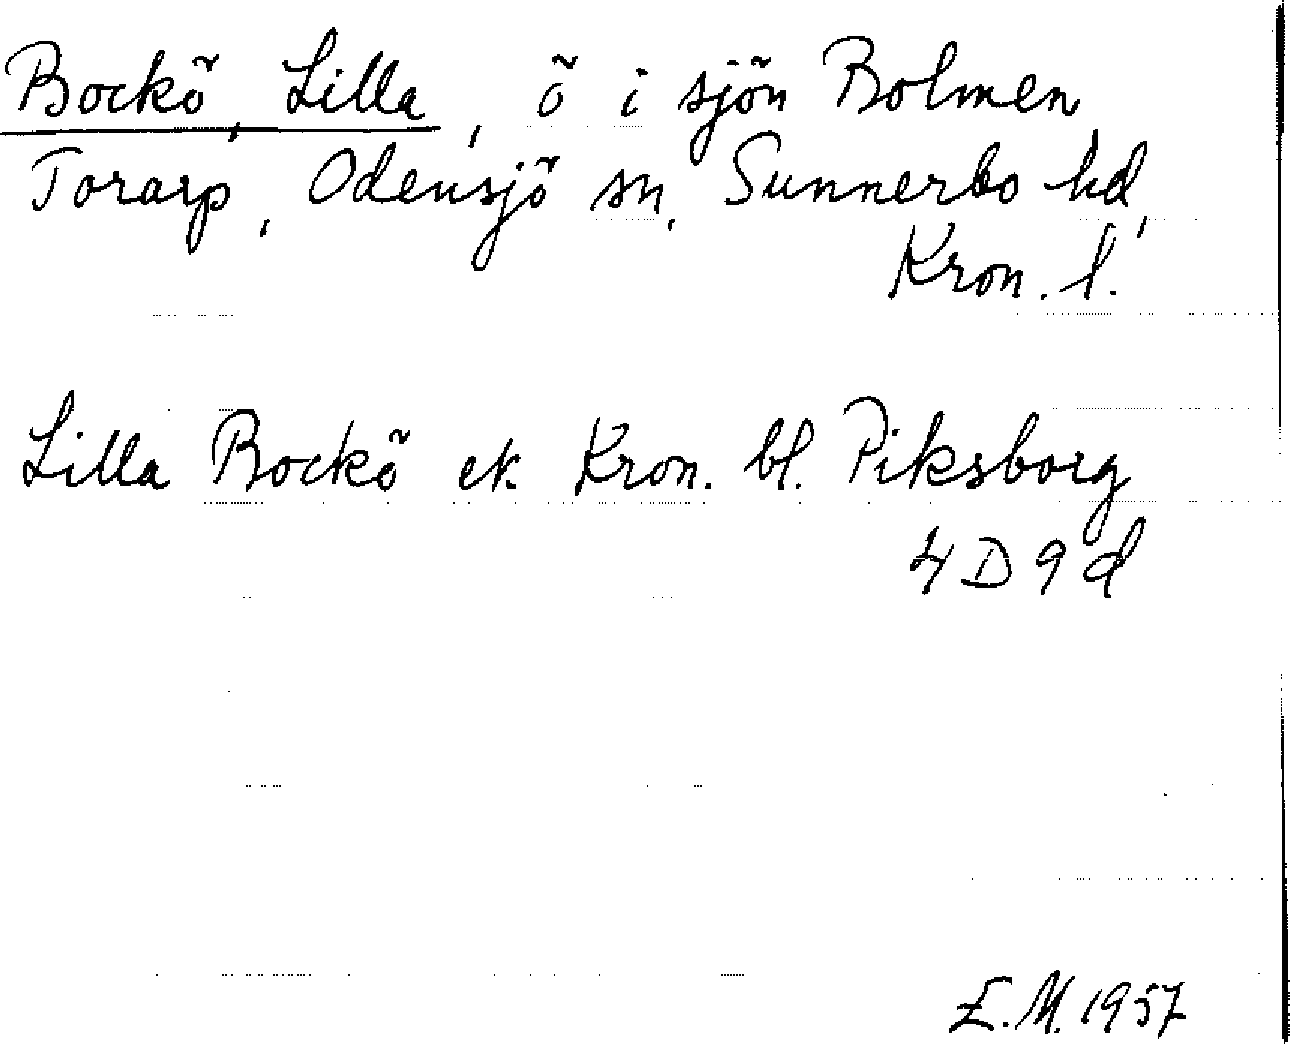 Bockö, Lilla, ö i sjön Bolmen,
Torarp, Odensjö sn, Sunnerbo hd,
Kron. l.
Lilla Bockö ek. Kron. bl. Piksborg
4 D 9 d
E.M. 1957